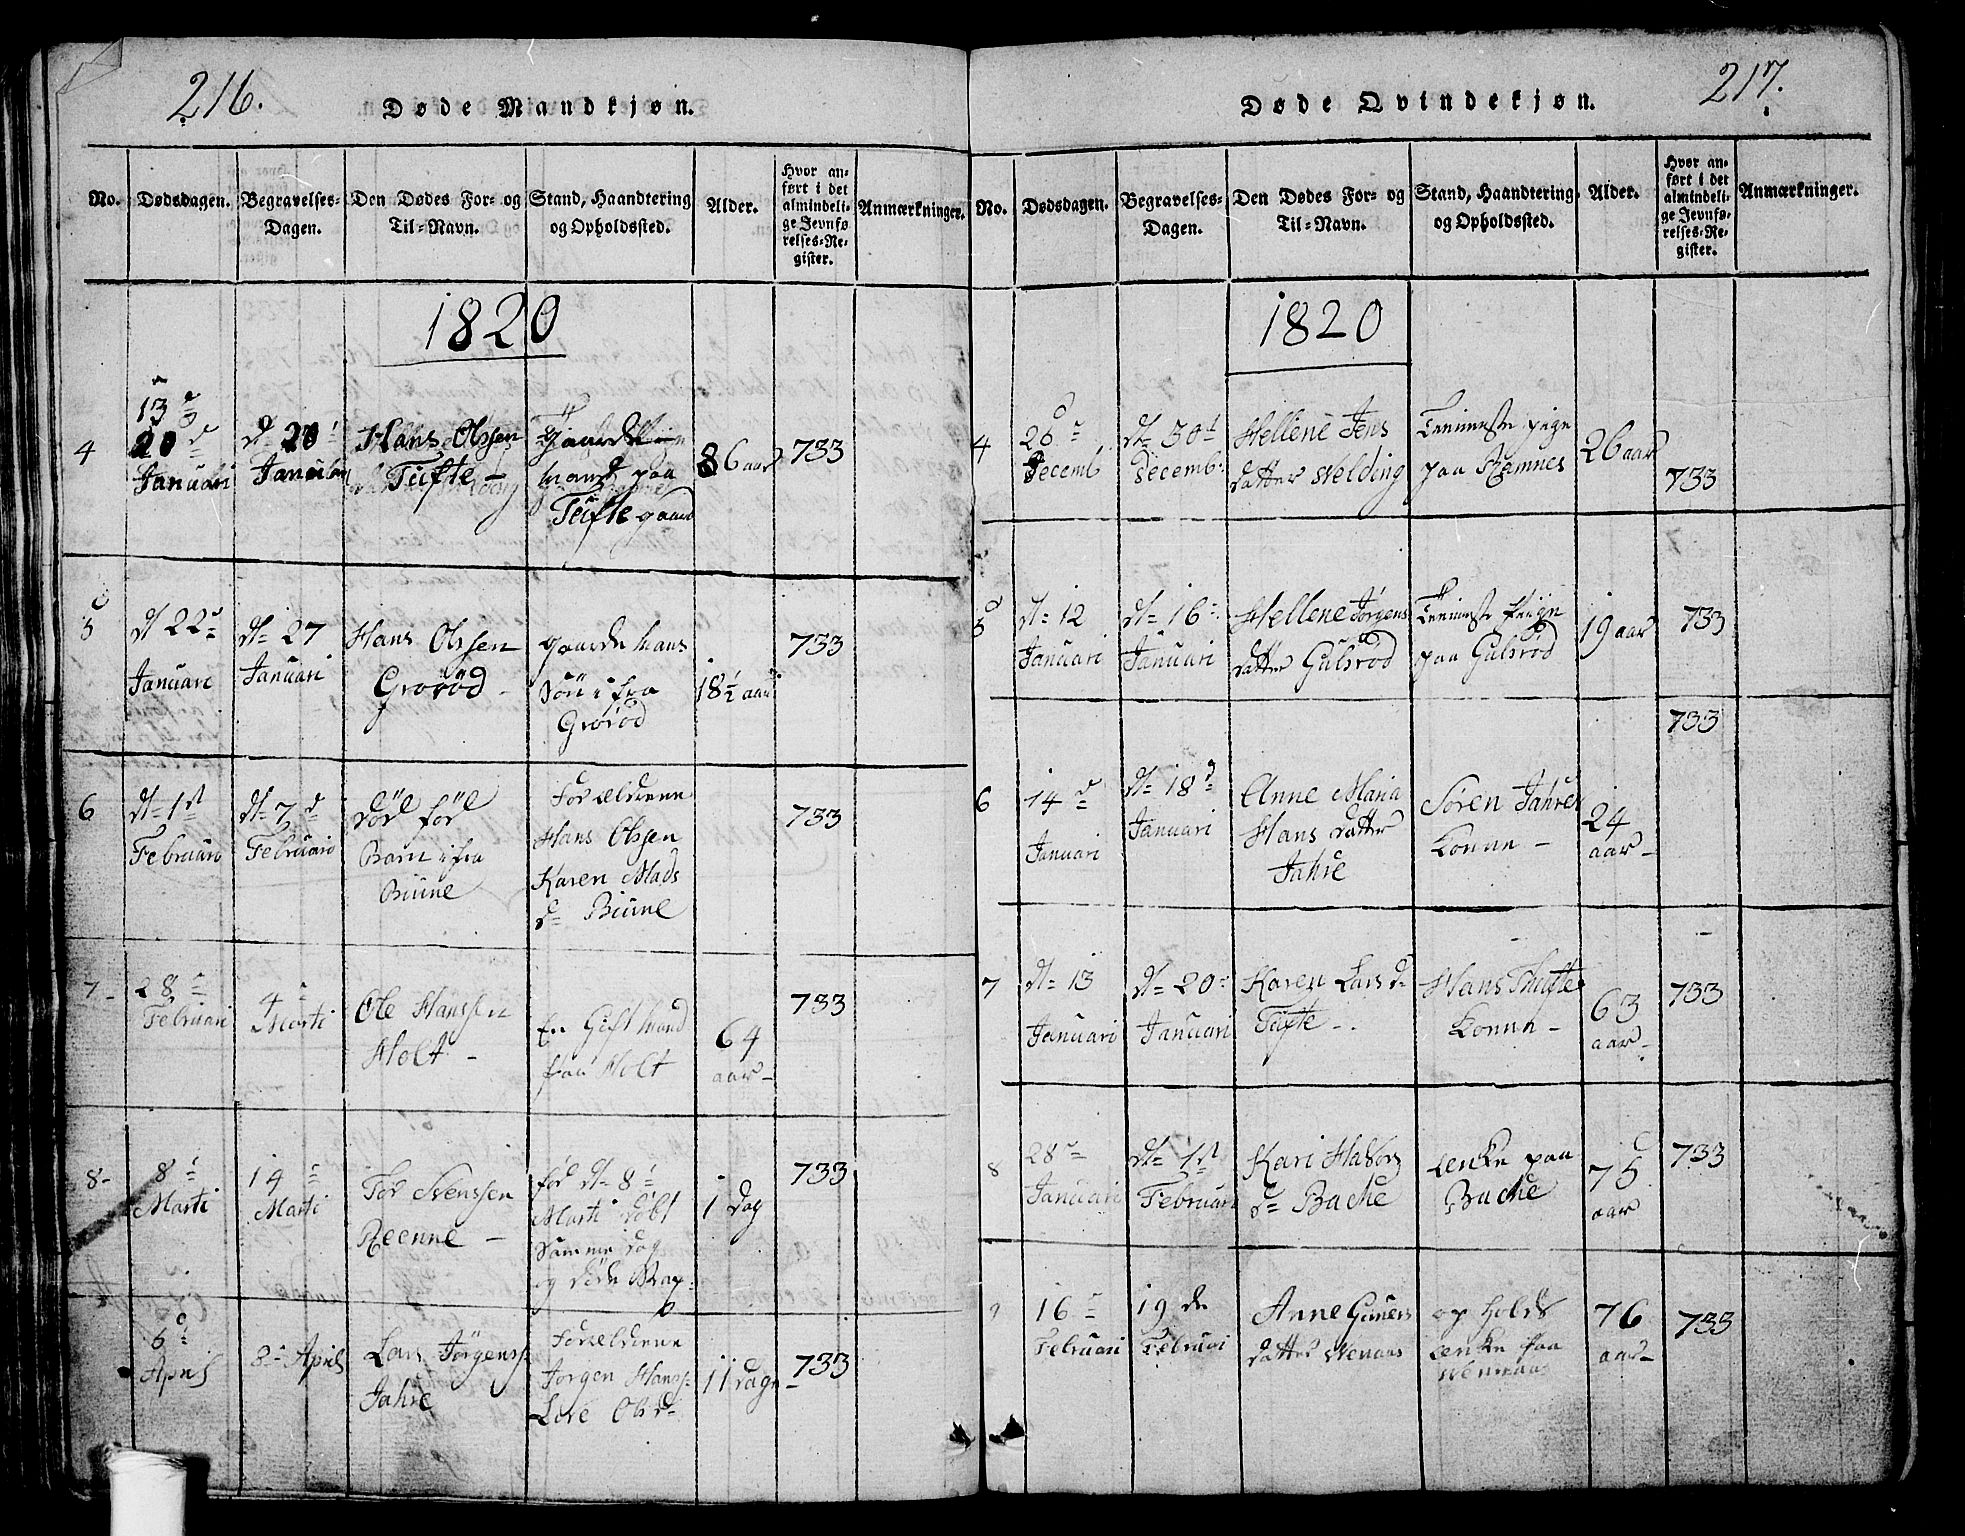 216.
Døde Mandkjøn.
No. Dødsdagen. Begravelses-Dagen. Den Dødes For- og Til-Navn. Stand, Haandtering og Opholdssted. Alder. Hvor anført i det almindelige Jevnførelses-Register. Anmærkninger.
1820
4
13d
20d
Januari
dt 20
Januari
Hans Olssen
Tufte -
Gaarde
mand paa
Tufte gaard
86 aar
733
5
dt 22
Januari
dt 27
Januari
Hans Olssen
Grorød -
gaarde mans
Søn ifra
Grorød
18½ aar
733
6
dt 1st
Februari
dt 7d
Februari
Død fød
Barn ifra
Biune
Forældrene
Hans Olssen
Karen Mads
d Biune
733
7-
28
Februari
4
Marti
Ole Hanssen
Holt -
En Gift Mand
paa Holt
64
aar-
733
8-
8
Marti
14
Marti
Tor Svenssen
Reenne -
fød dt 8
Marti døbt
Samme dag
og døde
1 dag
733
6
April
8 April
Lars Jørgenss
Jahre
Forældrene
Jørgen Hanss
Olsd
11 dage
733
217.
Døde Qvindekjøn.
No. Dødsdagen. Begravelses-Dagen. Den Dødes For- og Til-Navn. Stand, Haandtering og Opholdssted. Alder. Hvor anført i det almindelige Jevnførelses-Register. Anmærkninger.
1820
4
26
Decemb
dt 30
Decemb:
Hellene Jens
datter Welding
Tienneste pige
paa Ramnes
26 aar
733
5
dt 12
Januari
dt 16
Januari
Hellene Jørgens
datter Gulsrød
Tienneste Piige
paa Gulsrød
19 aar
733
6
14d
Januari
dt 18d
Januari
Anne Maria
Hans datter
Jahre
Søren Jahres
Konne -
24
aar-
733
7
dt 13
Januari
dt 20
Januari
Karen Lars d
Tufte -
Hans Thufte
Konne -
63
aar-
733
8
28
Januari
dt 1st
Februari
Kari Halvors
d Bache
Enke paa
Bache
75
aar
733
9
16
Februari
19 de
Februari
Anne Guners
datter Wenaas
op holds
Enke paa
76
aar-
733